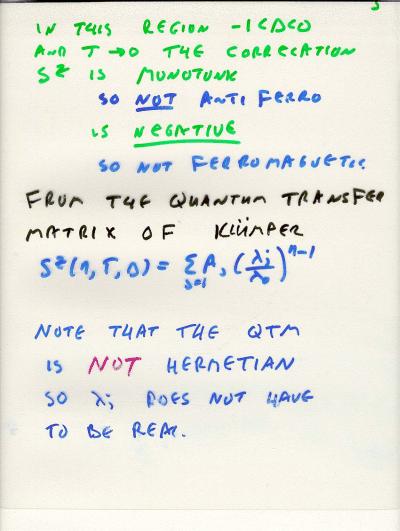 5
IN THIS REGION -1<Δ<0
AND T→0 THE CORRELATION
S^z IS MONOTONIC
SO NOT ANTI FERRO
IS NEGATIVE
SO NOT FERROMAGNETIC
FROM THE QUANTUM TRANSFER
MATRIX OF KLÜMPER
S^z(n,T,Δ) = Σ_{j=1} A_j (λ_j/λ_0)^{n-1}
NOTE THAT THE QTM
IS NOT HERMETIAN
SO λ_j DOES NOT HAVE
TO BE REAL.